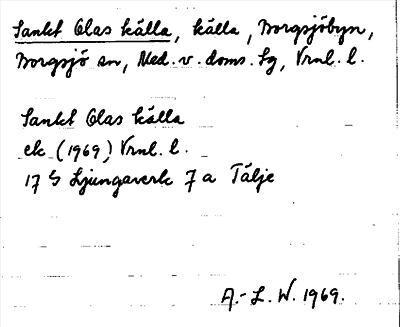 Sankt Olas källa, källa, Borgsjöbyn,
Borgsjö sn, Med. v. doms. sg, Vrnl. l.
Sankt Olas källa
ek (1969) Vrnl. l.
17 G Ljungaverk 7 a Tälje
A.-L. W. 1969.